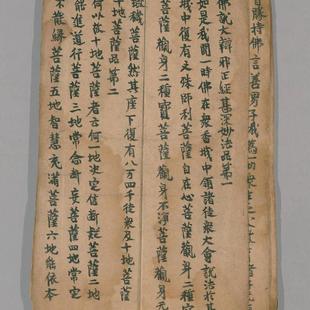 持佛言善男子我為
佛說大辯邪正經甚深妙法品第一
如是我聞一時佛在眾香城中領諸徒眾大會說法於其
城中復有文殊師利菩薩自在心菩薩觀身二種空
菩薩觀身二種實菩薩觀身不淨菩薩觀身无
穢菩薩然其座下復有八万四千徒眾十地菩薩
十地菩薩品第二
何以故十地菩薩者云何一地決定信断疑菩薩二地
能進道行菩薩三地常念断妄菩薩四地常定
不能緣菩薩五地智慧充滿菩薩六地能依本